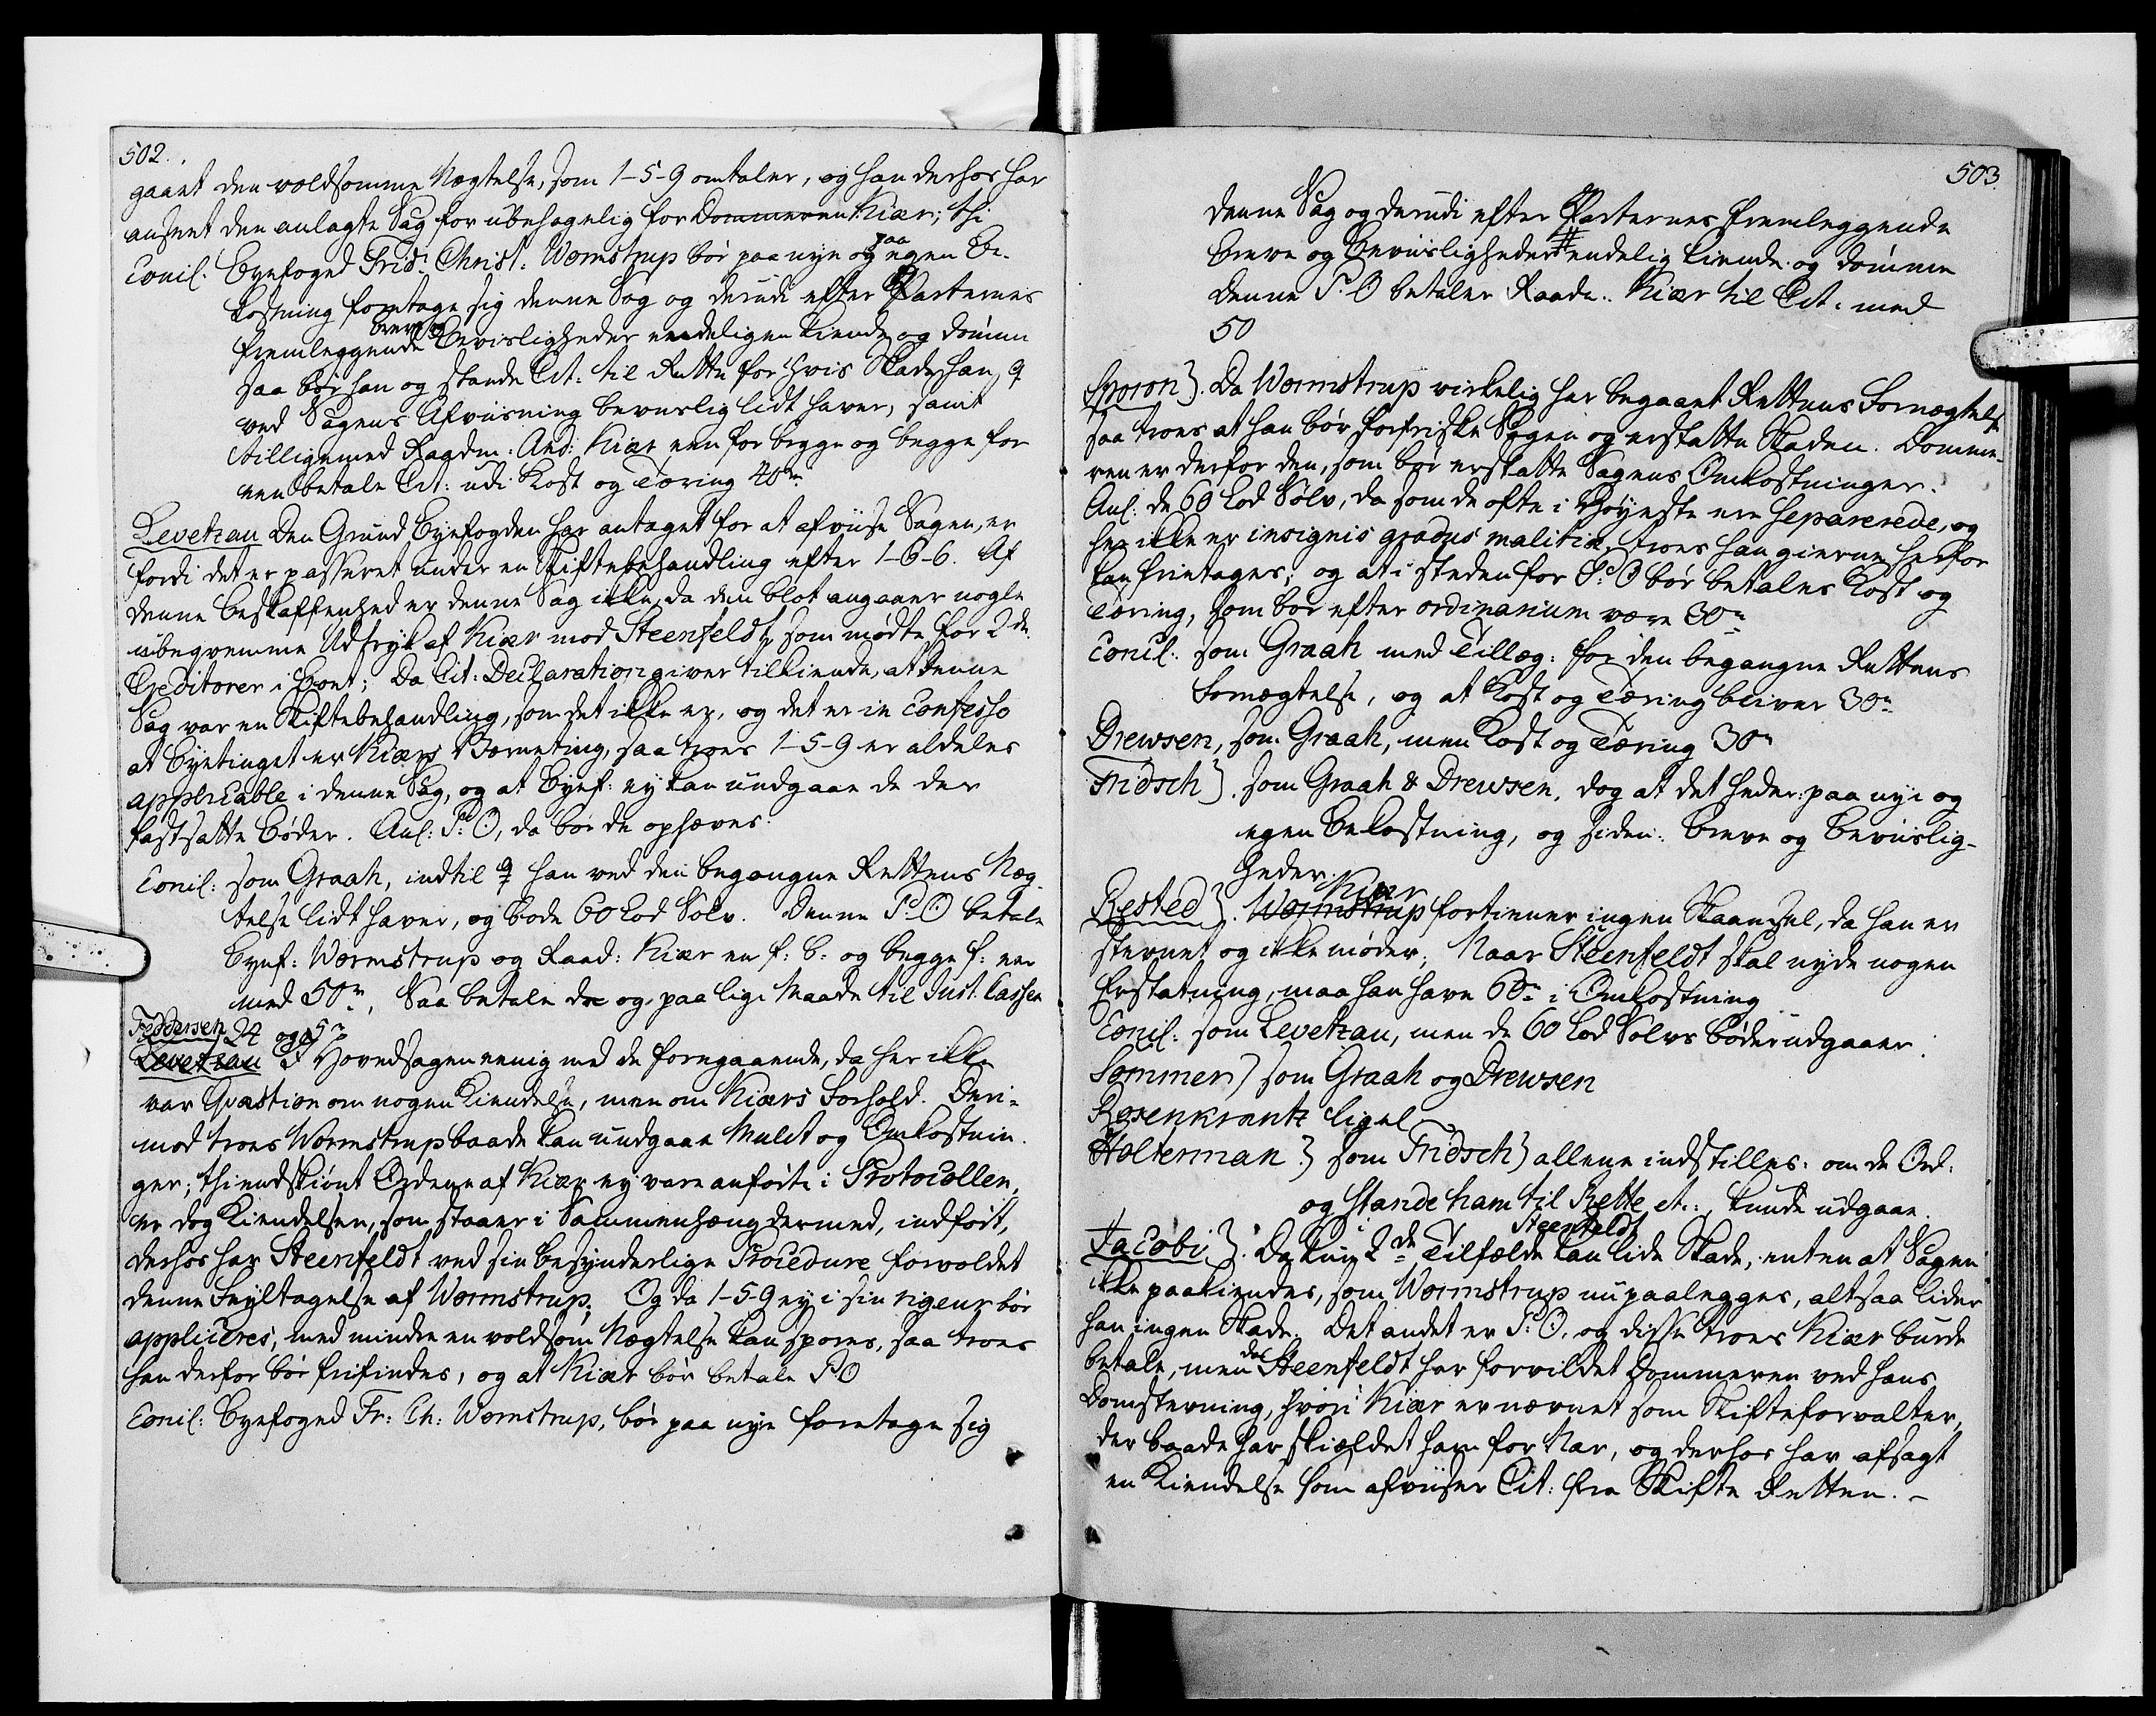 502.
gaaet den voldsomme Nægtelse, som 1-5-9 omtaler, og han derhos har
anseet den anlagte Sag for ubehagelig for Dommeren Kiær; thi
Concl. Byefoged Frid: Christ: Wormstrup bør paa nye og paa egen Be-
kostning foretage sig denne Sag og derudi efter Parternes
fremleggende Breve og Bevisligheder endeligen kiende og dømme
saa bør han og stande Cit: til Rette for hvis Skade han
ved Sagens Afviisning beviislig lidt haver, samt
tilligemed Raadm: And: Kiær een for begge og begge for
een betale Cit: udi Kost og Tæring 40rd
Levetzau Den Grund Byefogden har antaget for at afviise Sagen, er
fordi det er passeret under en Skiftebehandling efter 1-6-6. Af
denne beskaffenhed er denne Sag ikke, da den blot angaaer nogle
ubeqvemme Udtryk af Kiær mod Steenfeldt, som mødte for 2de
Creditorer i Boet; Da Cit: Declaration giver tilkiende, at denne
Sag var en Skiftebehandling, som det ikke er, og det er in Confesso
at Byetinget er Kiærs Værneting, saa troes 1-5-9 er aldeles
applicable i denne Sag, og at Byef: ey kan undgaae de der
fastsatte bøder. Anl: P:O, da bør de ophæves.
Concl: som Graah, indtil han ved den begangne Rettens Næg-
telse lidt haver, og bøde 60 Lod Sølv. Denne P:O betale
Byef: Wormstrup og Raad: Kiær en f: b: og begge f: een
med 50rd, Saa betale de og paa lige Maade til Just: Cassen
Feddersen 24 og 5rd
Levetzau I Hovedsagen eenig med de foregaaende, da her ikke
var Qvæstion om nogen Kiendelse, men om Kiærs Forhold. Deri-
mod troes Wormstrup baade kan undgaae Mulct og Omkostnin-
ger; thi endskiønt Ordene af Kiær ey vare anførte i Protocollen,
er dog Kiendelsen, som staaer i Sammenhæng dermed, indført,
derhos har Steenfeldt ved sin besynderlige Procedure forvoldet
denne Feyltagelse af Wormstrup. Og da 1-5-9 ey i sin rigeur bør
appliceres, med mindre en voldsom Nægtelse kan spores, saa troes
han derfor bør frifindes, og at Kiær bør betale P:O
Concl: Byefoged Fr: Ch: Wormstrup, bør paa nye foretage sig
503.
denne Sag og derudi efter Parternes fremleggende
Breve og Beviisligheder endelig kiende og dømme
denne P:O betaler Raadm: Kiær til Cit: med
50
Horon). Da Wormstrup virkelig har begaaet Rettens Fornægtelse
saa troes at han bør forfriske Sagen og erstatte Skaden. Domme-
ren er derfor den, som bør erstatte Sagens Omkostninger.
Anl: de 60 Lod Sølv, da som de ofte i Høyeste ere separerede, og
her ikke er insignis gradus malitiæ, troes han gierne herfor
kan fritages, og at i steden for P:O bør betales Kost og
Tæring, som bør efter ordinarium være 30rd
Concl: som Graah med Tillæg: for den begangne Rettens
Fornægtelse, og at Kost og Tæring bliver 30rd
Drewsen, som Graah, men Kost og Tæring 30rd
Fridsch). som Graah & Drewsen, dog at det heder: paa nye og
egen Bekostning, og siden: Breve og Beviislig-
heder.
Rested). Wormstrup Kiær fortiener ingen Skaansel, da han er
stevnet og ikke møder; Naar Steenfeldt skal nyde nogen
Erstatning, maa han have 60rd i Omkostning
Concl: som Levetzau, men de 60 Lod Sølvs bøder udgaaer.
Sommer) som Graah og Drewsen
Rosenkrantz ligel
Holterman) som Fridsch) allene indstilles: om de Ord:
og stande ham til Rette et.:, kunde udgaae.
Jacobi). Da kun i 2de Tilfælde Steenfeldt kan lide Skade, enten at Sagen
ikke paakiendes, som Wormstrup nu paalegges, altsaa lider
han ingen Skade. Det andet er P:O, og disse troes Kiær burde
betale, men da Steenfeldt har forvildet Dommeren ved hans
Domstevning, hvori Kiær er nævnet som Skifteforvalter,
der baade har skieldet ham for Nar, og derhos har afsagt
en Kiendelse som afviiser Cit: fra Skifte Retten. -